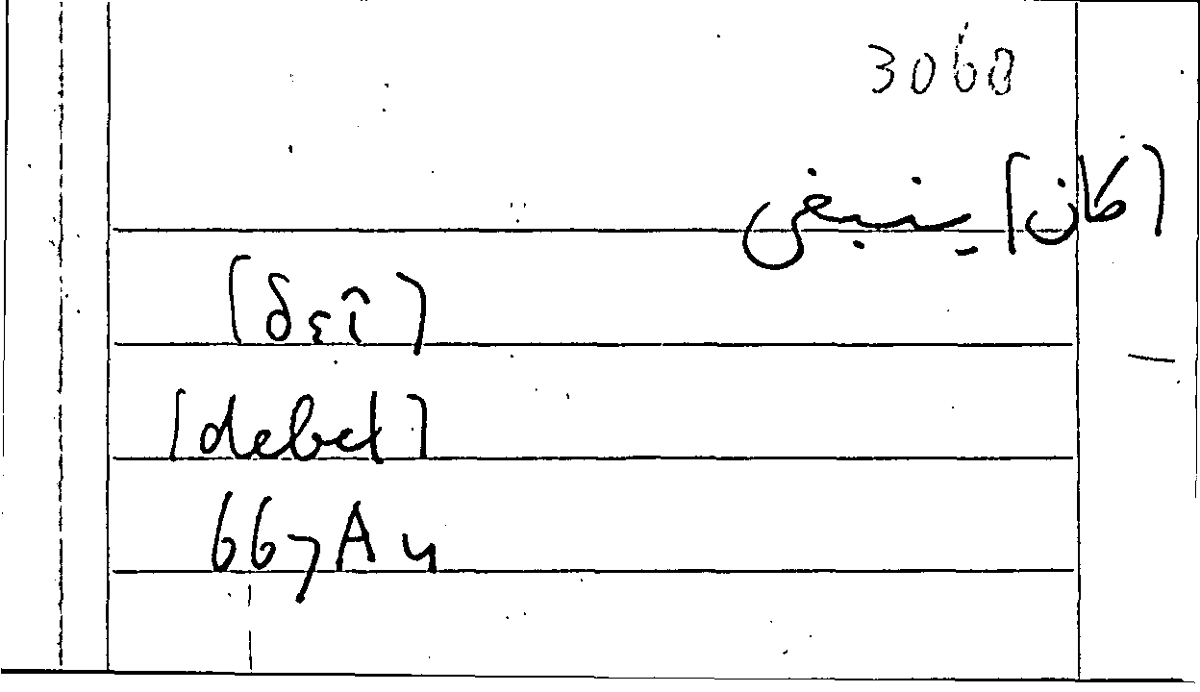 3060
[كان] ينبغي
[δεῖ]
[debet]
667A4